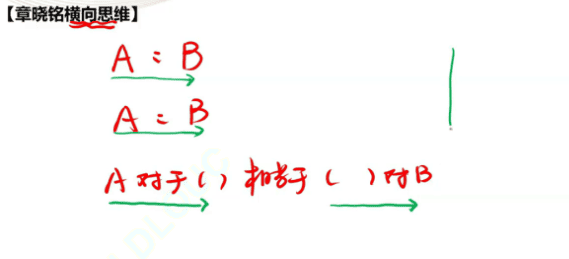 【章晓铭横向思维】
A : B
A : B
A 对于( ) 相当于 ( )对B